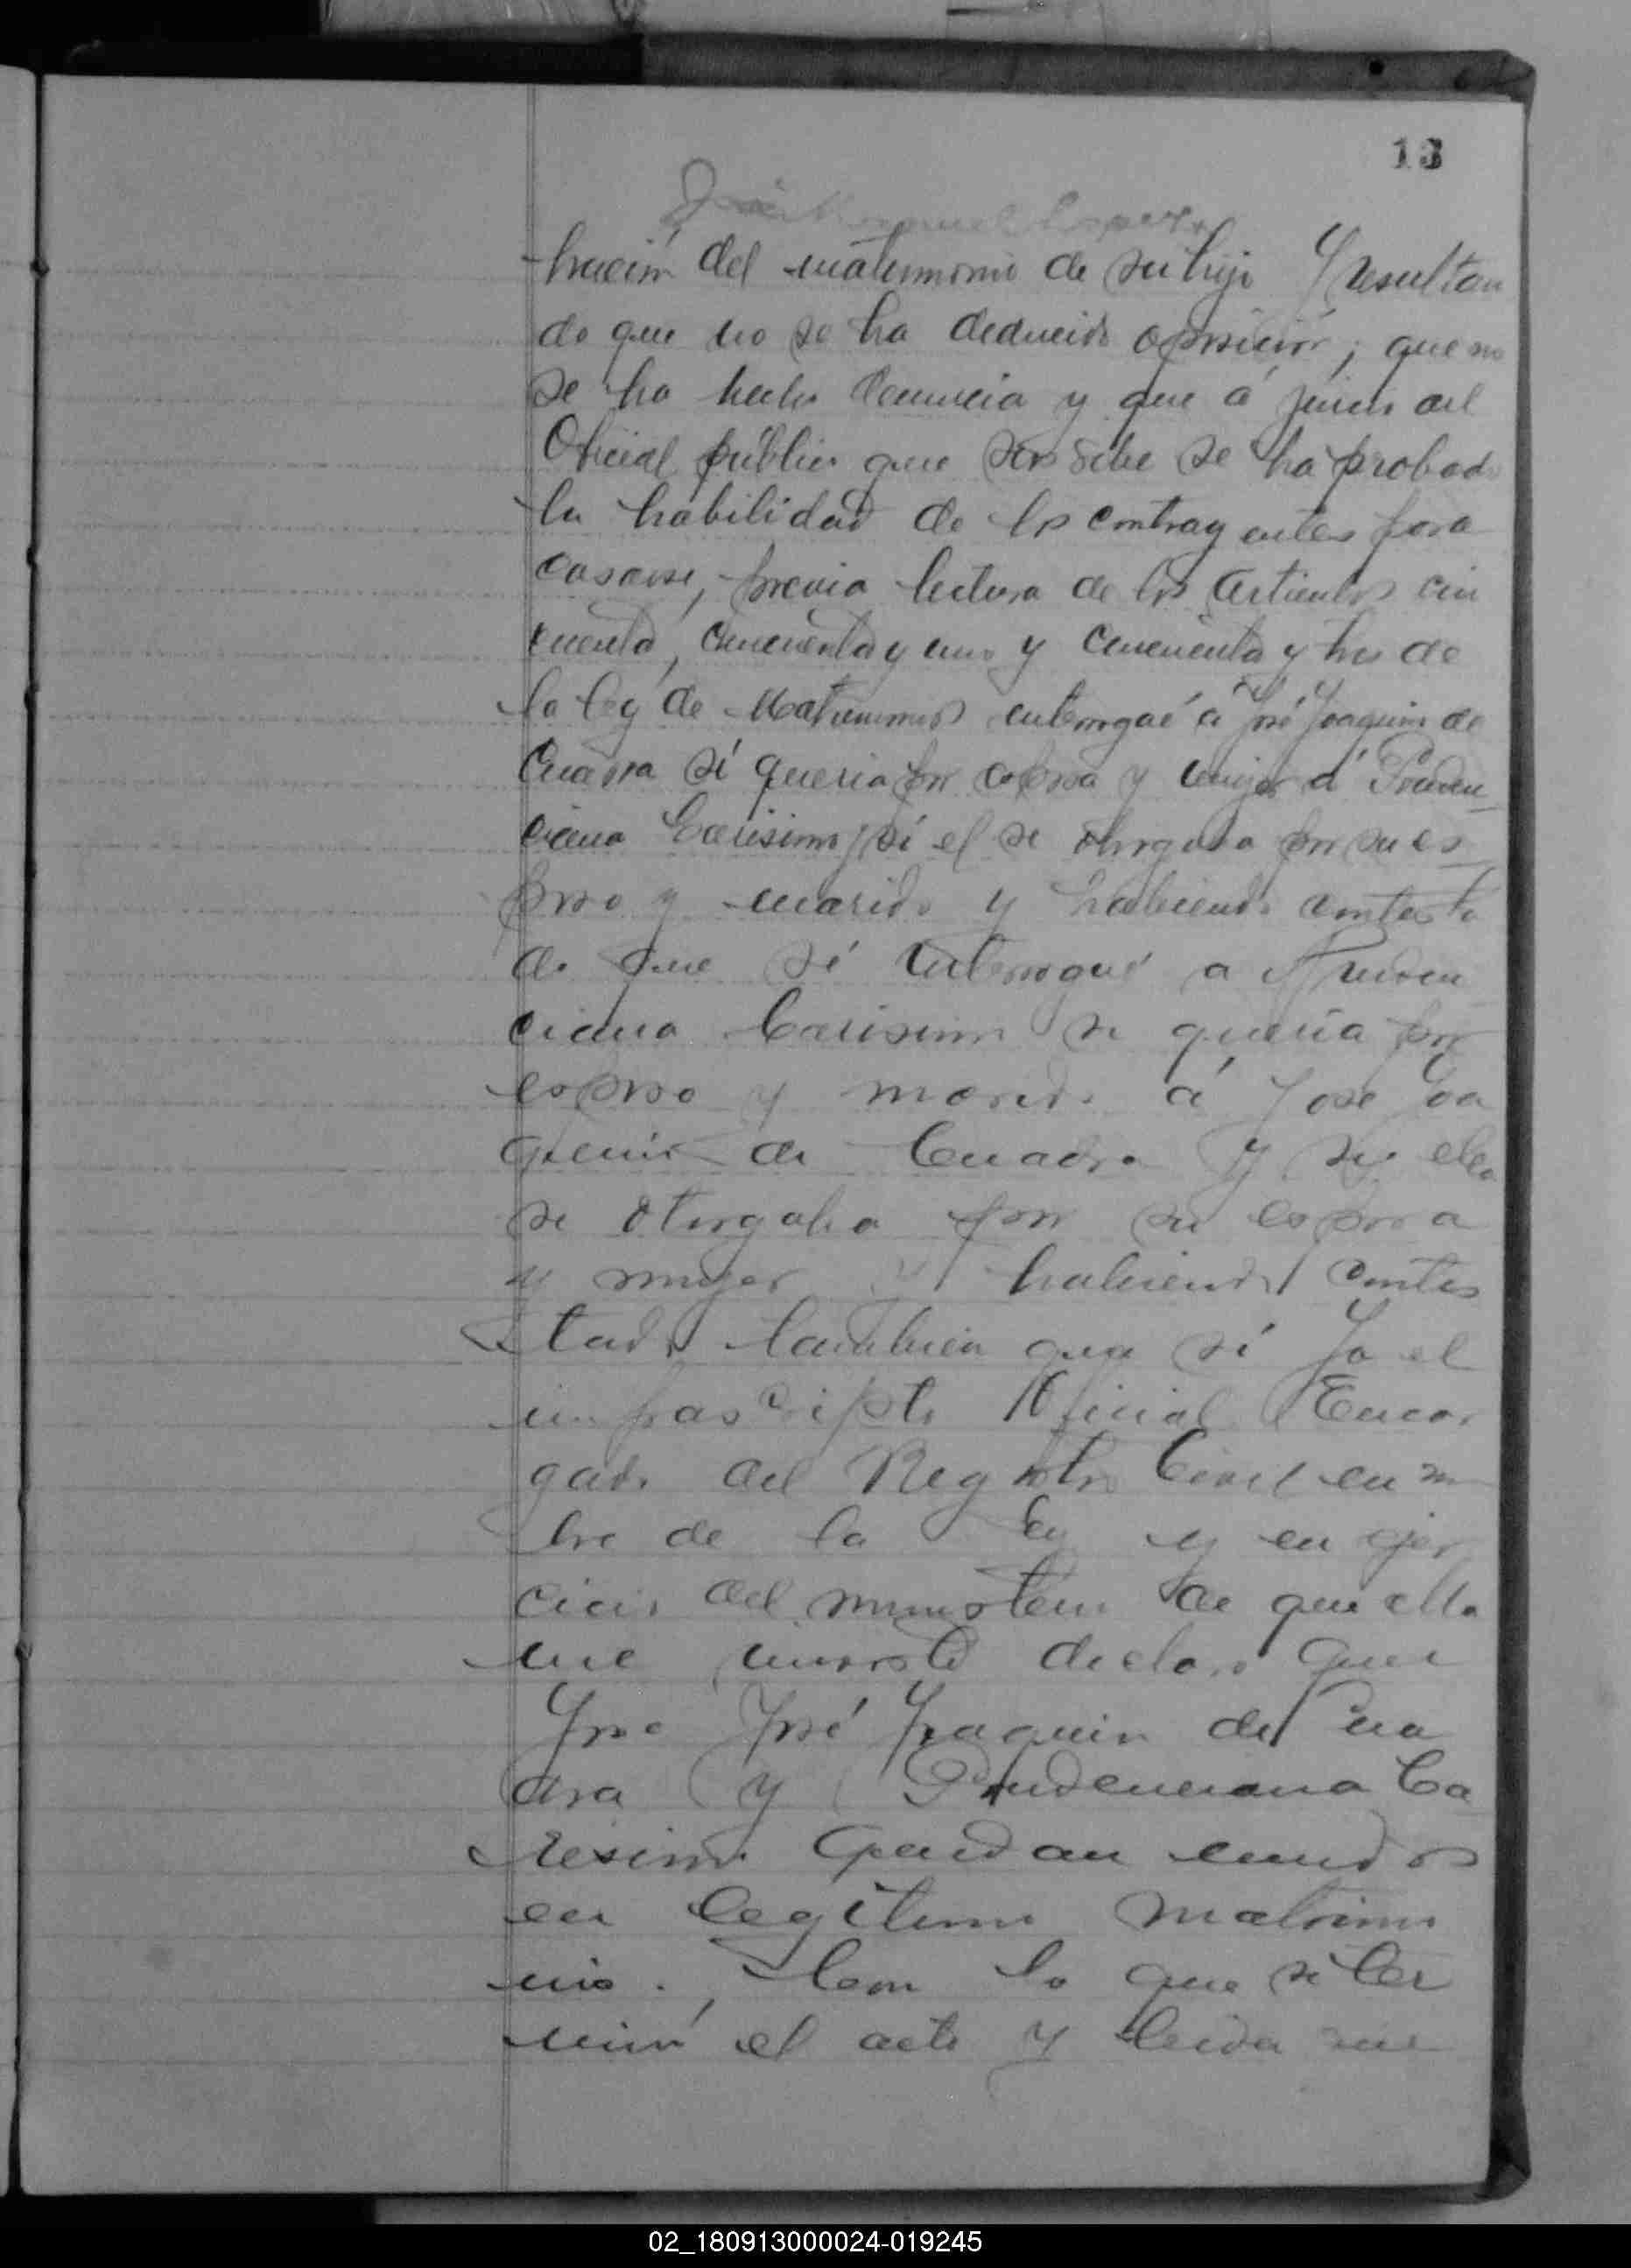 13
bración del matrimonio de su hijo Y resultan
do que no se ha deducido oposición; que no
se ha hecho denuncia y que á juicio del
Oficial público que suscribe se ha probado
la habilidad de los contrayentes para
casarse, previa lectura de los artículos cin
cuenta, cincuenta y uno y cincuenta y tres de
la ley de Matrimonios interrogué á José Joaquin de
Cuadra sí queria por esposa y mujer á Pruden
ciana Carisimo y si el se otorgaba por su es
poso y marido y habiendo contesta
do que sí interrogué a Pruden
ciana Carisimo si quería por
esposo y marido á José Joa
quin de Cuadra y si ella
se otorgaba por su esposa
y mujer y habiendo contes
tado tambien que sí Yo el
infrascripto Oficial Encar
gado del Registro Civil en nom
bre de la ley y en ejer
cicio del ministerio de que ella
me invistió declaro que
José Joaquin de Cua
dra y Prudenciana Ca
resimo quedan unidos
en legítimo matrimo
nio., Con lo que se ter
minó el acto y leida que
02_180913000024-019245